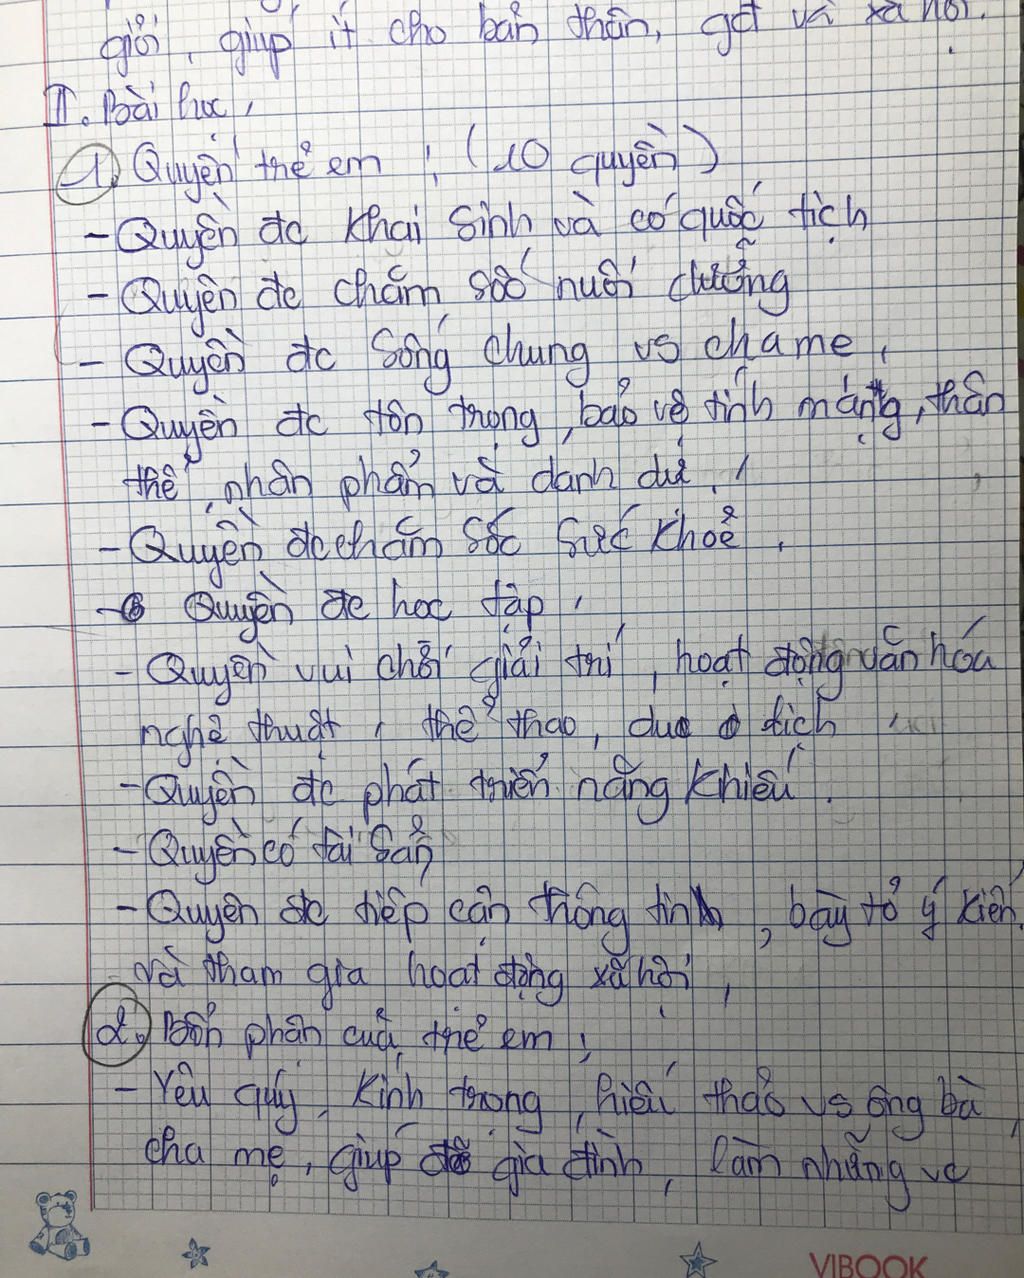 giới, giúp ít cho bản thân, gđ và xã hội.
II. Bài học,
1. Quyền trẻ em : (10 quyền)
- Quyền đc khai sinh và có quốc tịch
- Quyền đc chăm sóc nuôi dưỡng
- Quyền đc sống chung vs cha mẹ,
- Quyền đc tôn trọng, bảo vệ tính mạng, thân
thể, nhân phẩm và danh dự,
- Quyền đc chăm sóc sức khoẻ.
- Quyền đc học tập,
- Quyền vui chơi giải trí, hoạt động văn hóa
nghệ thuật, thể thao, du lịch
- Quyền đc phát triển năng khiếu.
- Quyền có tài sản
- Quyền đc tiếp cận thông tin, bày tỏ ý kiến
và tham gia hoạt động xã hội,
2. Bổn phận của trẻ em:
- Yêu quý, kính trọng, hiếu thảo vs ông bà,
cha mẹ, giúp đỡ gia đình, làm những vc
VIBOOK